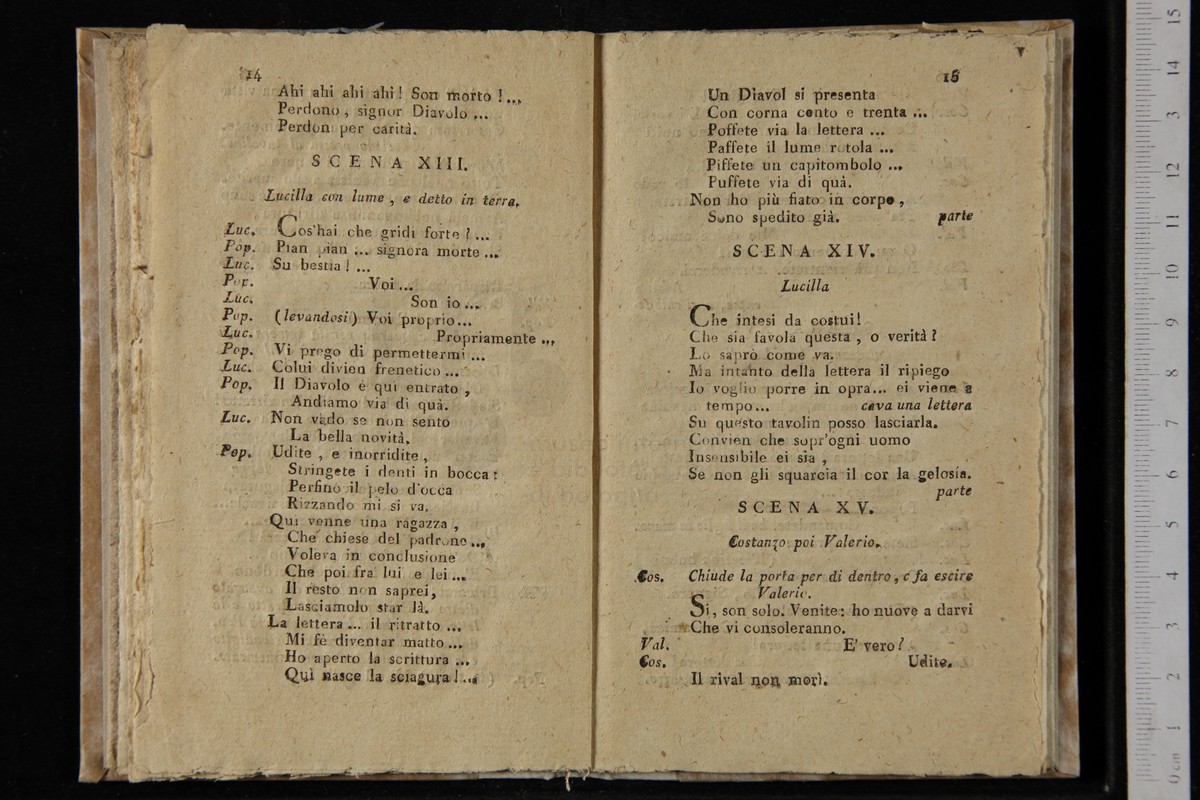 14
Ahi ahi ahi ahi! Son morto!...
Perdono, signor Diavolo...
Perdon per carità.
SCENA XIII.
Lucilla con lume, e detto in terra.
Luc. Cos'hai che gridi forte?...
Pop. Pian pian... signora morte...
Luc. Su bestia!...
Pop. Voi...
Luc. Son io...
Pop. (levandosi) Voi proprio...
Luc. Propriamente...
Pop. Vi prego di permettermi...
Luc. Colui divien frenetico...
Pop. Il Diavolo è quì entrato,
Andiamo via di quà.
Luc. Non vado se non sento
La bella novità.
Pop. Udite, e inorridite,
Stringete i denti in bocca:
Perfino il pelo d'occa
Rizzando mi si va.
Qui venne una ragazza,
Che chiese del padrone...
Voleva in conclusione
Che poi fra lui e lei...
Il resto non saprei,
Lasciamolo star là.
La lettera... il ritratto...
Mi fè diventar matto...
Ho aperto la scrittura...
Quì nasce la sciagura!...
15
Un Diavol si presenta
Con corna cento e trenta...
Poffete via la lettera...
Paffete il lume rotola...
Piffete un capitombolo...
Puffete via di quà.
Non ho più fiato in corpo,
Sono spedito già. parte
SCENA XIV.
Lucilla
Che intesi da costui!
Che sia favola questa, o verità?
Lo saprò come va.
Ma intanto della lettera il ripiego
Io voglio porre in opra... ei viene a
tempo... cava una lettera
Su questo tavolin posso lasciarla.
Convien che sopr'ogni uomo
Insensibile ei sia,
Se non gli squarcia il cor la gelosia.
parte
SCENA XV.
Costanzo poi Valerio.
Cos. Chiude la porta per di dentro, e fa escire
Valerio.
Si, son solo. Venite: ho nuove a darvi
Che vi consoleranno.
Val. E' vero?
Cos. Udite.
Il rival non morì.